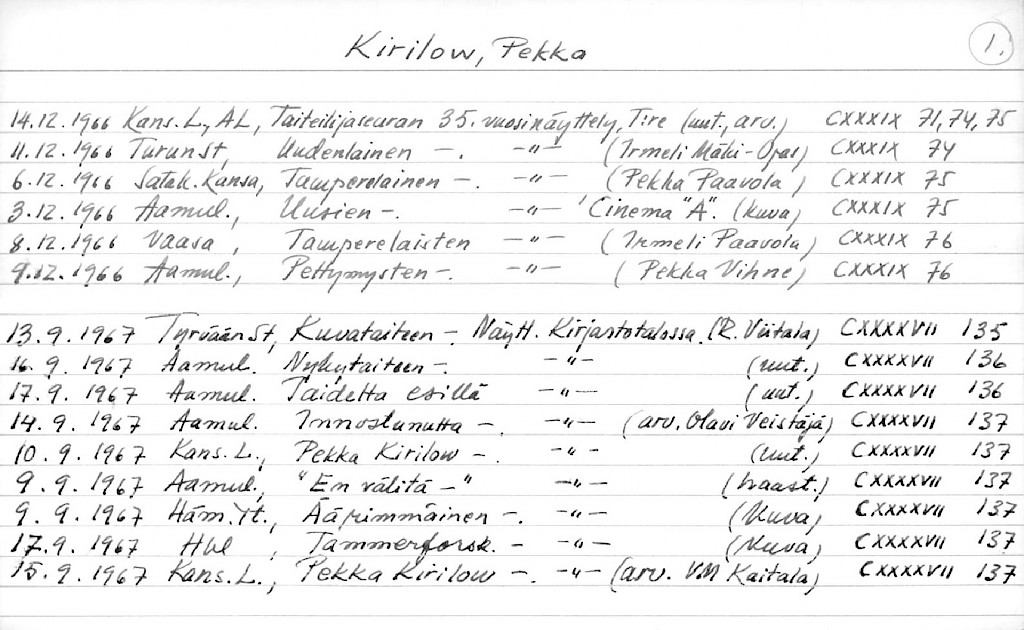 Kirilow, Pekka
1.
14.12.1966 Kans.L, AL, Taiteilijaseuran 35. vuosinäyttely, T:re (uut., arv.) CXXXIX 71, 74, 75
11.12.1966 TurunSt, Uudenlainen –. –"– (Irmeli Mäki-Opas) CXXXIX 74
6.12.1966 Satak.Kansa, Tamperelainen –. –"– (Pekka Paavola) CXXXIX 75
3.12.1966 Aamul., Uusien –. –"– 'Cinema "A". (kuva) CXXXIX 75
8.12.1966 Vaasa, Tamperelaisten –"– (Irmeli Paavola) CXXXIX 76
9.12.1966 Aamul., Pettymysten –. –"– (Pekka Vihne) CXXXIX 76
13.9.1967 TyrväänSt, Kuvataiteen –. Näytt. Kirjastotalossa. (R. Viitala) CXXXXVII 135
16.9.1967 Aamul. Nykytaiteen –. –"– (uut.) CXXXXVII 136
17.9.1967 Aamul. Taidetta esillä –"– (uut.) CXXXXVII 136
14.9.1967 Aamul. Innostunutta –. –"– (arv. Olavi Veistäjä) CXXXXVII 137
10.9.1967 Kans.L., Pekka Kirilow –. –"– (uut.) CXXXXVII 137
9.9.1967 Aamul., "En välitä –" –"– (haast.) CXXXXVII 137
9.9.1967 Häm.Yt., Äärimmäinen –. –"– (kuva) CXXXXVII 137
17.9.1967 Hbl, Tammerforsk. – –"– (kuva) CXXXXVII 137
15.9.1967 Kans.L., Pekka Kirilow –. –"– (arv. VM Kaitala) CXXXXVII 137